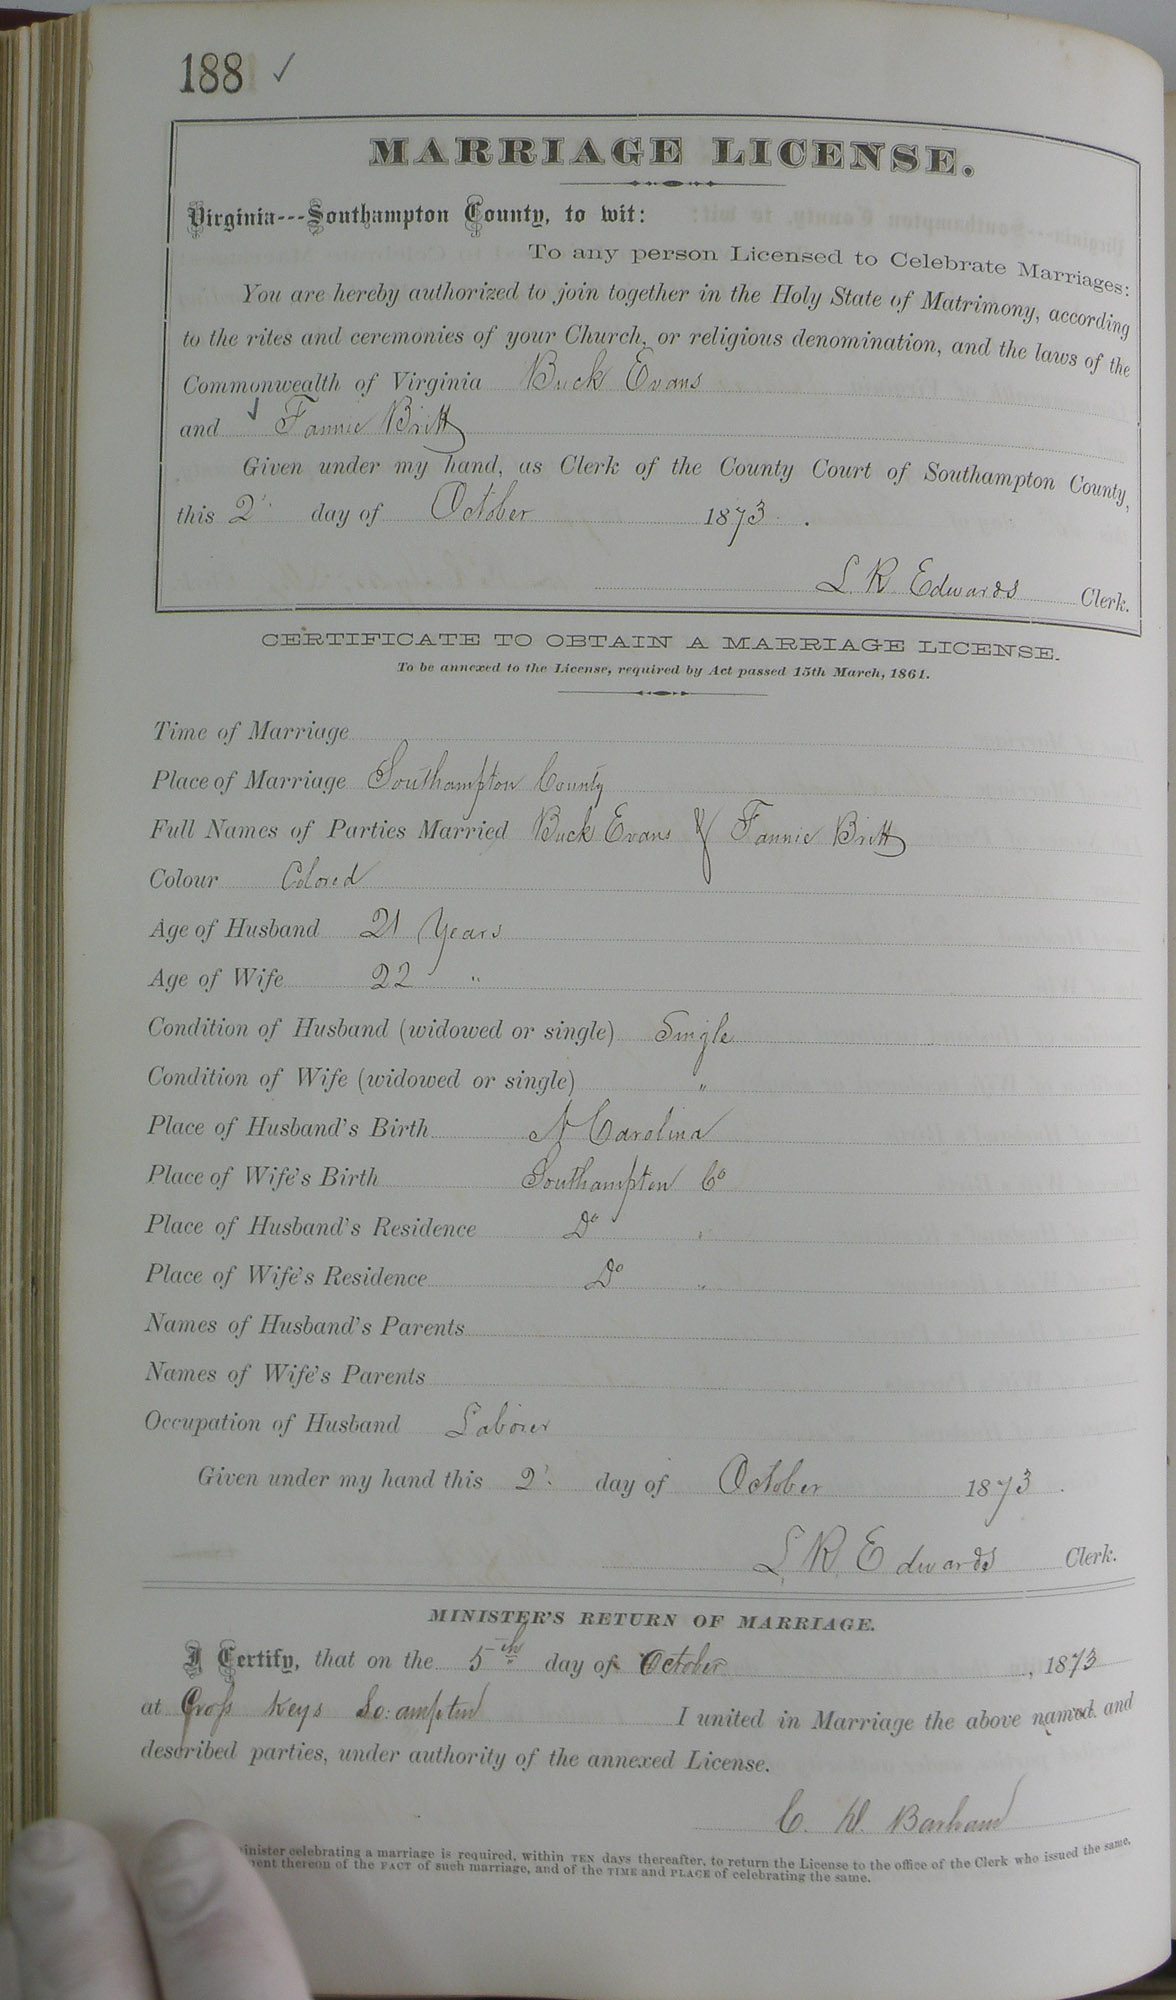 188 ✓
MARRIAGE LICENSE.
Virginia---Southampton County, to wit:
To any person Licensed to Celebrate Marriages:
You are hereby authorized to join together in the Holy State of Matrimony, according
to the rites and ceremonies of your Church, or religious denomination, and the laws of the
Commonwealth of Virginia Buck Evans
and ✓ Fannie Britt
Given under my hand, as Clerk of the County Court of Southampton County,
this 2' day of October 1873.
L. R. Edwards Clerk.
CERTIFICATE TO OBTAIN A MARRIAGE LICENSE.
To be annexed to the License, required by Act passed 15th March, 1861.
Time of Marriage
Place of Marriage Southampton County
Full Names of Parties Married Buck Evans & Fannie Britt
Colour Colored
Age of Husband 21 Years
Age of Wife 22 "
Condition of Husband (widowed or single) Single
Condition of Wife (widowed or single) "
Place of Husband's Birth N Carolina
Place of Wife's Birth Southampton Co
Place of Husband's Residence Do "
Place of Wife's Residence Do "
Names of Husband's Parents
Names of Wife's Parents
Occupation of Husband Laborer
Given under my hand this 2' day of October 1873.
L. R. Edwards Clerk.
MINISTER'S RETURN OF MARRIAGE.
I Certify, that on the 5th day of October, 1873
at Cross Keys So:ampton I united in Marriage the above named and
described parties, under authority of the annexed License.
C. W. Barham
inister celebrating a marriage is required, within TEN days thereafter, to return the License to the office of the Clerk who issued the same,
ent thereon of the FACT of such marriage, and of the TIME and PLACE of celebrating the same.